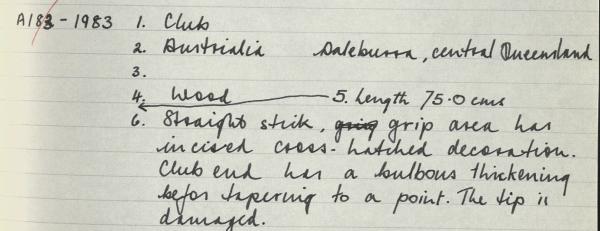 A182-1983 1. Club
2. Austrialia Daleburra, central Queensland
3.
4. Wood 5. Length 75.0 cms
6. Straight stick, grip area has
incised cross-hatched decoration.
Club end has a bulbous thickening
befor tapering to a point. The tip is
damaged.